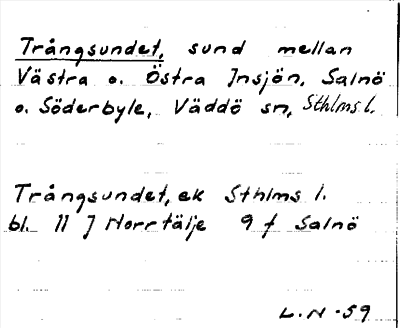 Trångsundet, sund mellan
Västra o. Östra Insjön, Salnö
o. Söderbyle, Väddö sn, Sthlms l.
Trångsundet, ek Sthlms l.
bl. 11 J Norrtälje 9 f Salnö
L.N -59